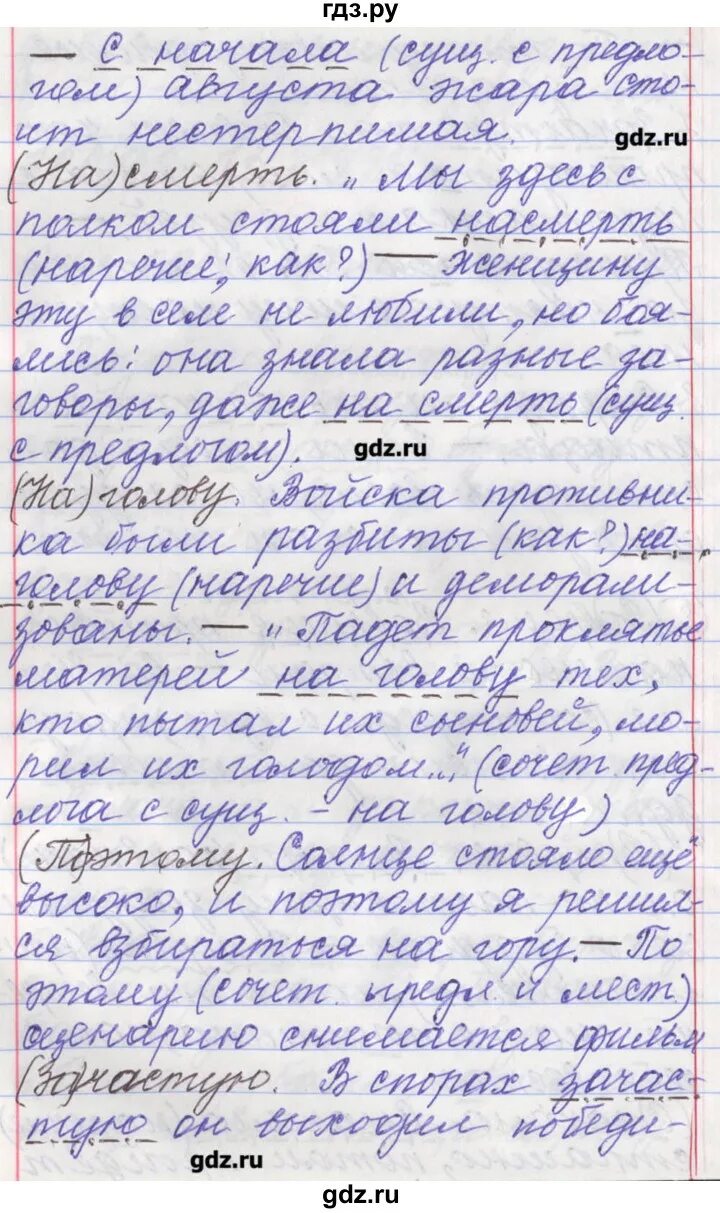 гдз.ру
— С начала (сущ. с предло-
гом) августа жара сто-
ит нестерпимая.
gdz.ru
(На)смерть. „Мы здесь с
полком стояли насмерть
(наречие; как?) — Женщину
эту в селе не любили, но боя-
лись: она знала разные за-
говоры, даже на смерть (сущ.
с предлогом).
gdz.ru
(На)голову. Войска противни-
ка были разбиты (как?) на-
голову (наречие) и деморали-
зованы. — „Падет проклятье
матерей на голову тех,
кто пытал их сыновей, мо-
рил их голодом..." (сочет. пред-
лога с сущ. – на голову)
(По)этому. Солнце стояло ещё
высоко, и поэтому я решил-
ся взбираться на гору. — По
этому (сочет. предл. и мест.)
сценарию снимается фильм
(За)частую. В спорах зачас-
тую он выходил победи-
gdz.ru
gdz.ru